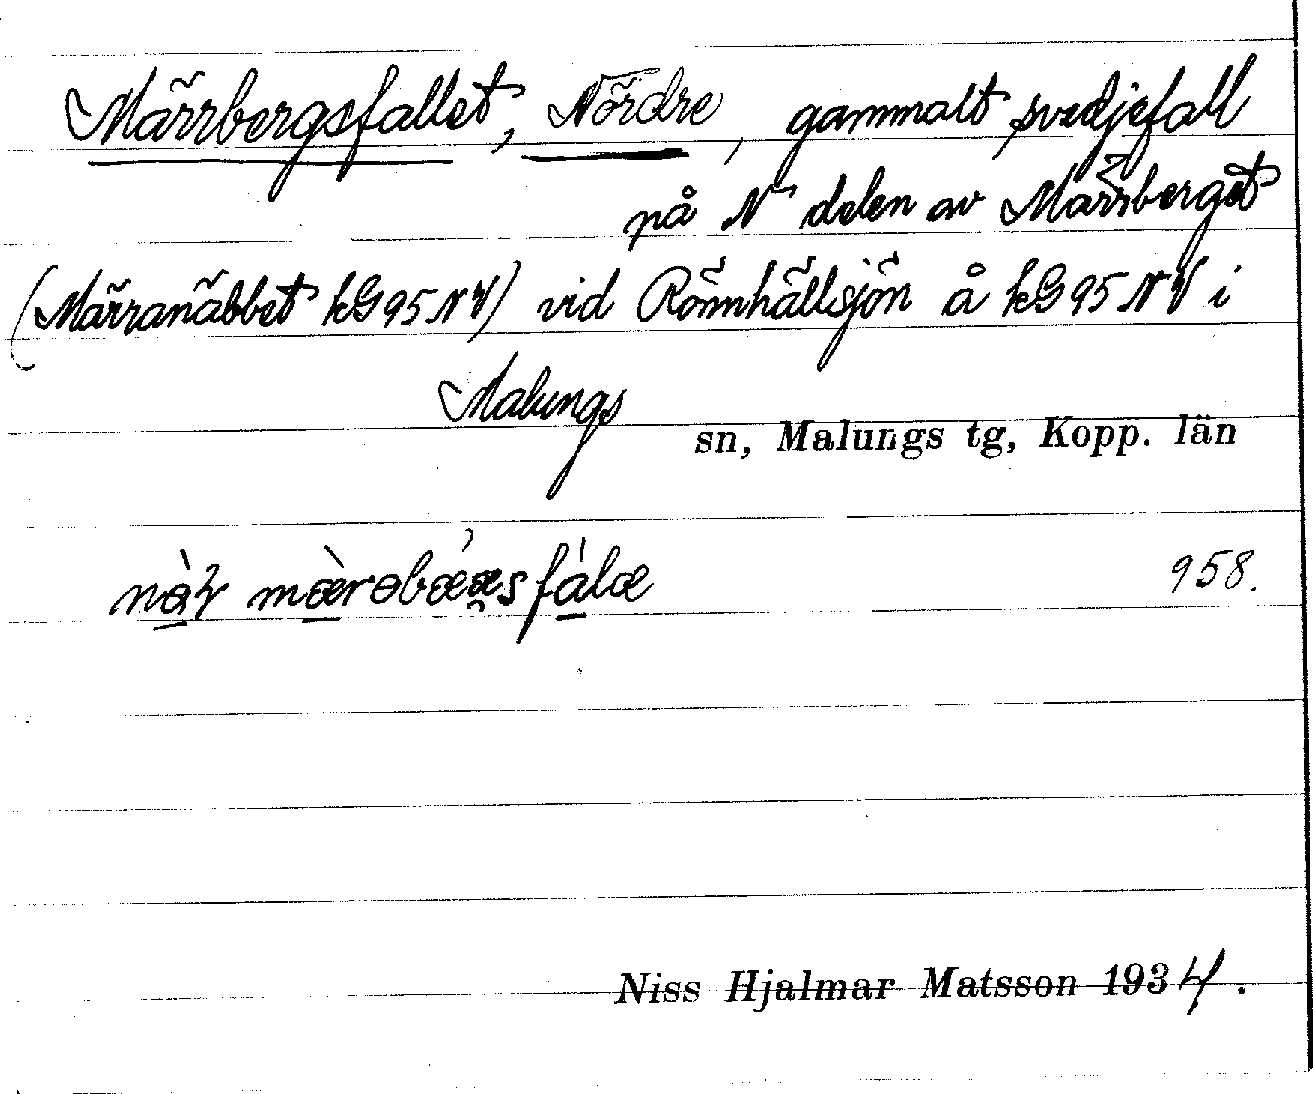 Märrbergsfallet, Nördre, gammalt svedjefall
på N delen av Märrberget
(Märranäbbet kG95NV) vid Rönnhällsjön å kG95NV i
Malungs sn, Malungs tg, Kopp. län
958.
Niss Hjalmar Matsson 1934.